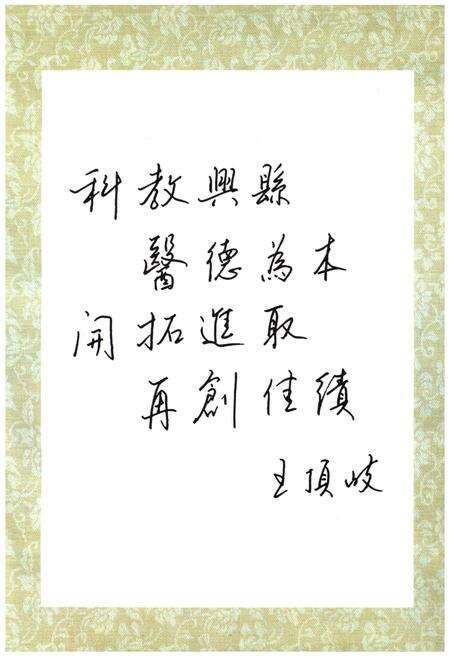 科教興縣
醫德為本
開拓進取
再創佳績
王頂岐